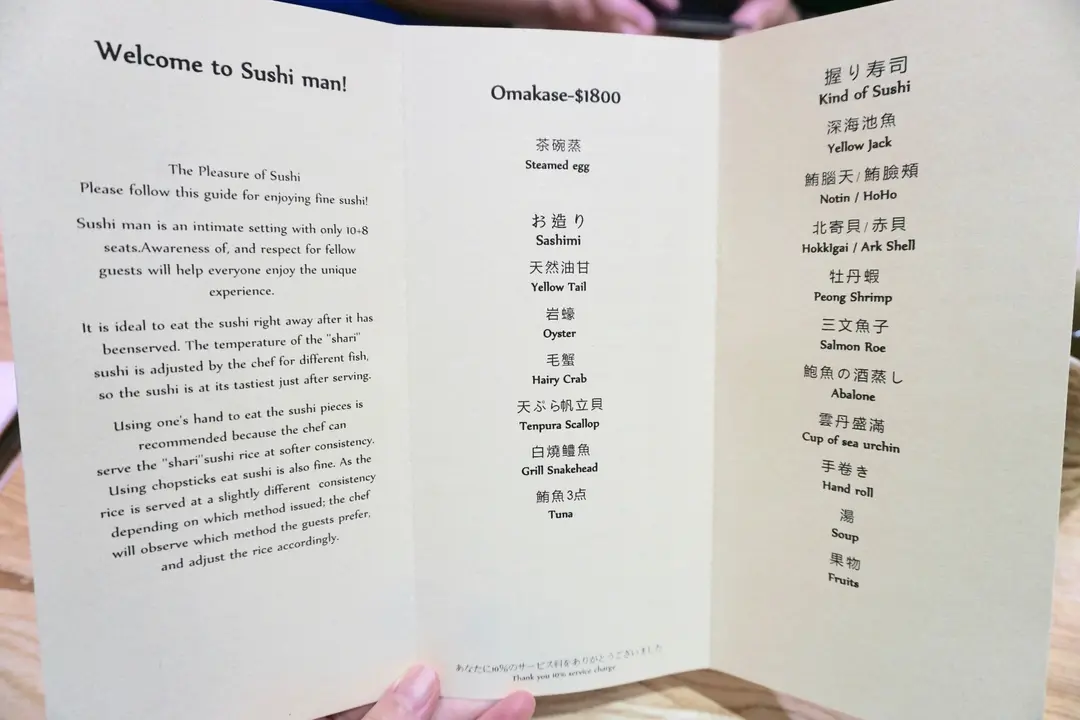 Welcome to Sushi man!
The Pleasure of Sushi
Please follow this guide for enjoying fine sushi!
Sushi man is an intimate setting with only 10+8
seats.Awareness of, and respect for fellow
guests will help everyone enjoy the unique
experience.
It is ideal to eat the sushi right away after it has
beenserved. The temperature of the "shari"
sushi is adjusted by the chef for different fish,
so the sushi is at its tastiest just after serving.
Using one's hand to eat the sushi pieces is
recommended because the chef can
serve the "shari"sushi rice at softer consistency.
Using chopsticks eat sushi is also fine. As the
rice is served at a slightly different consistency
depending on which method issued; the chef
will observe which method the guests prefer,
and adjust the rice accordingly.
Omakase-$1800
茶碗蒸
Steamed egg
お造り
Sashimi
天然油甘
Yellow Tail
岩蠔
Oyster
毛蟹
Hairy Crab
天ぷら帆立貝
Tenpura Scallop
白燒鱧魚
Grill Snakehead
鮪魚3点
Tuna
あなたに10%のサービス料をありがとうございました
Thank you 10% service charge
握り寿司
Kind of Sushi
深海池魚
Yellow Jack
鮪腦天/鮪臉頰
Notin / HoHo
北寄貝/赤貝
HokkIgai / Ark Shell
牡丹蝦
Peong Shrimp
三文魚子
Salmon Roe
鮑魚の酒蒸し
Abalone
雲丹盛滿
Cup of sea urchin
手巻き
Hand roll
湯
Soup
果物
Fruits